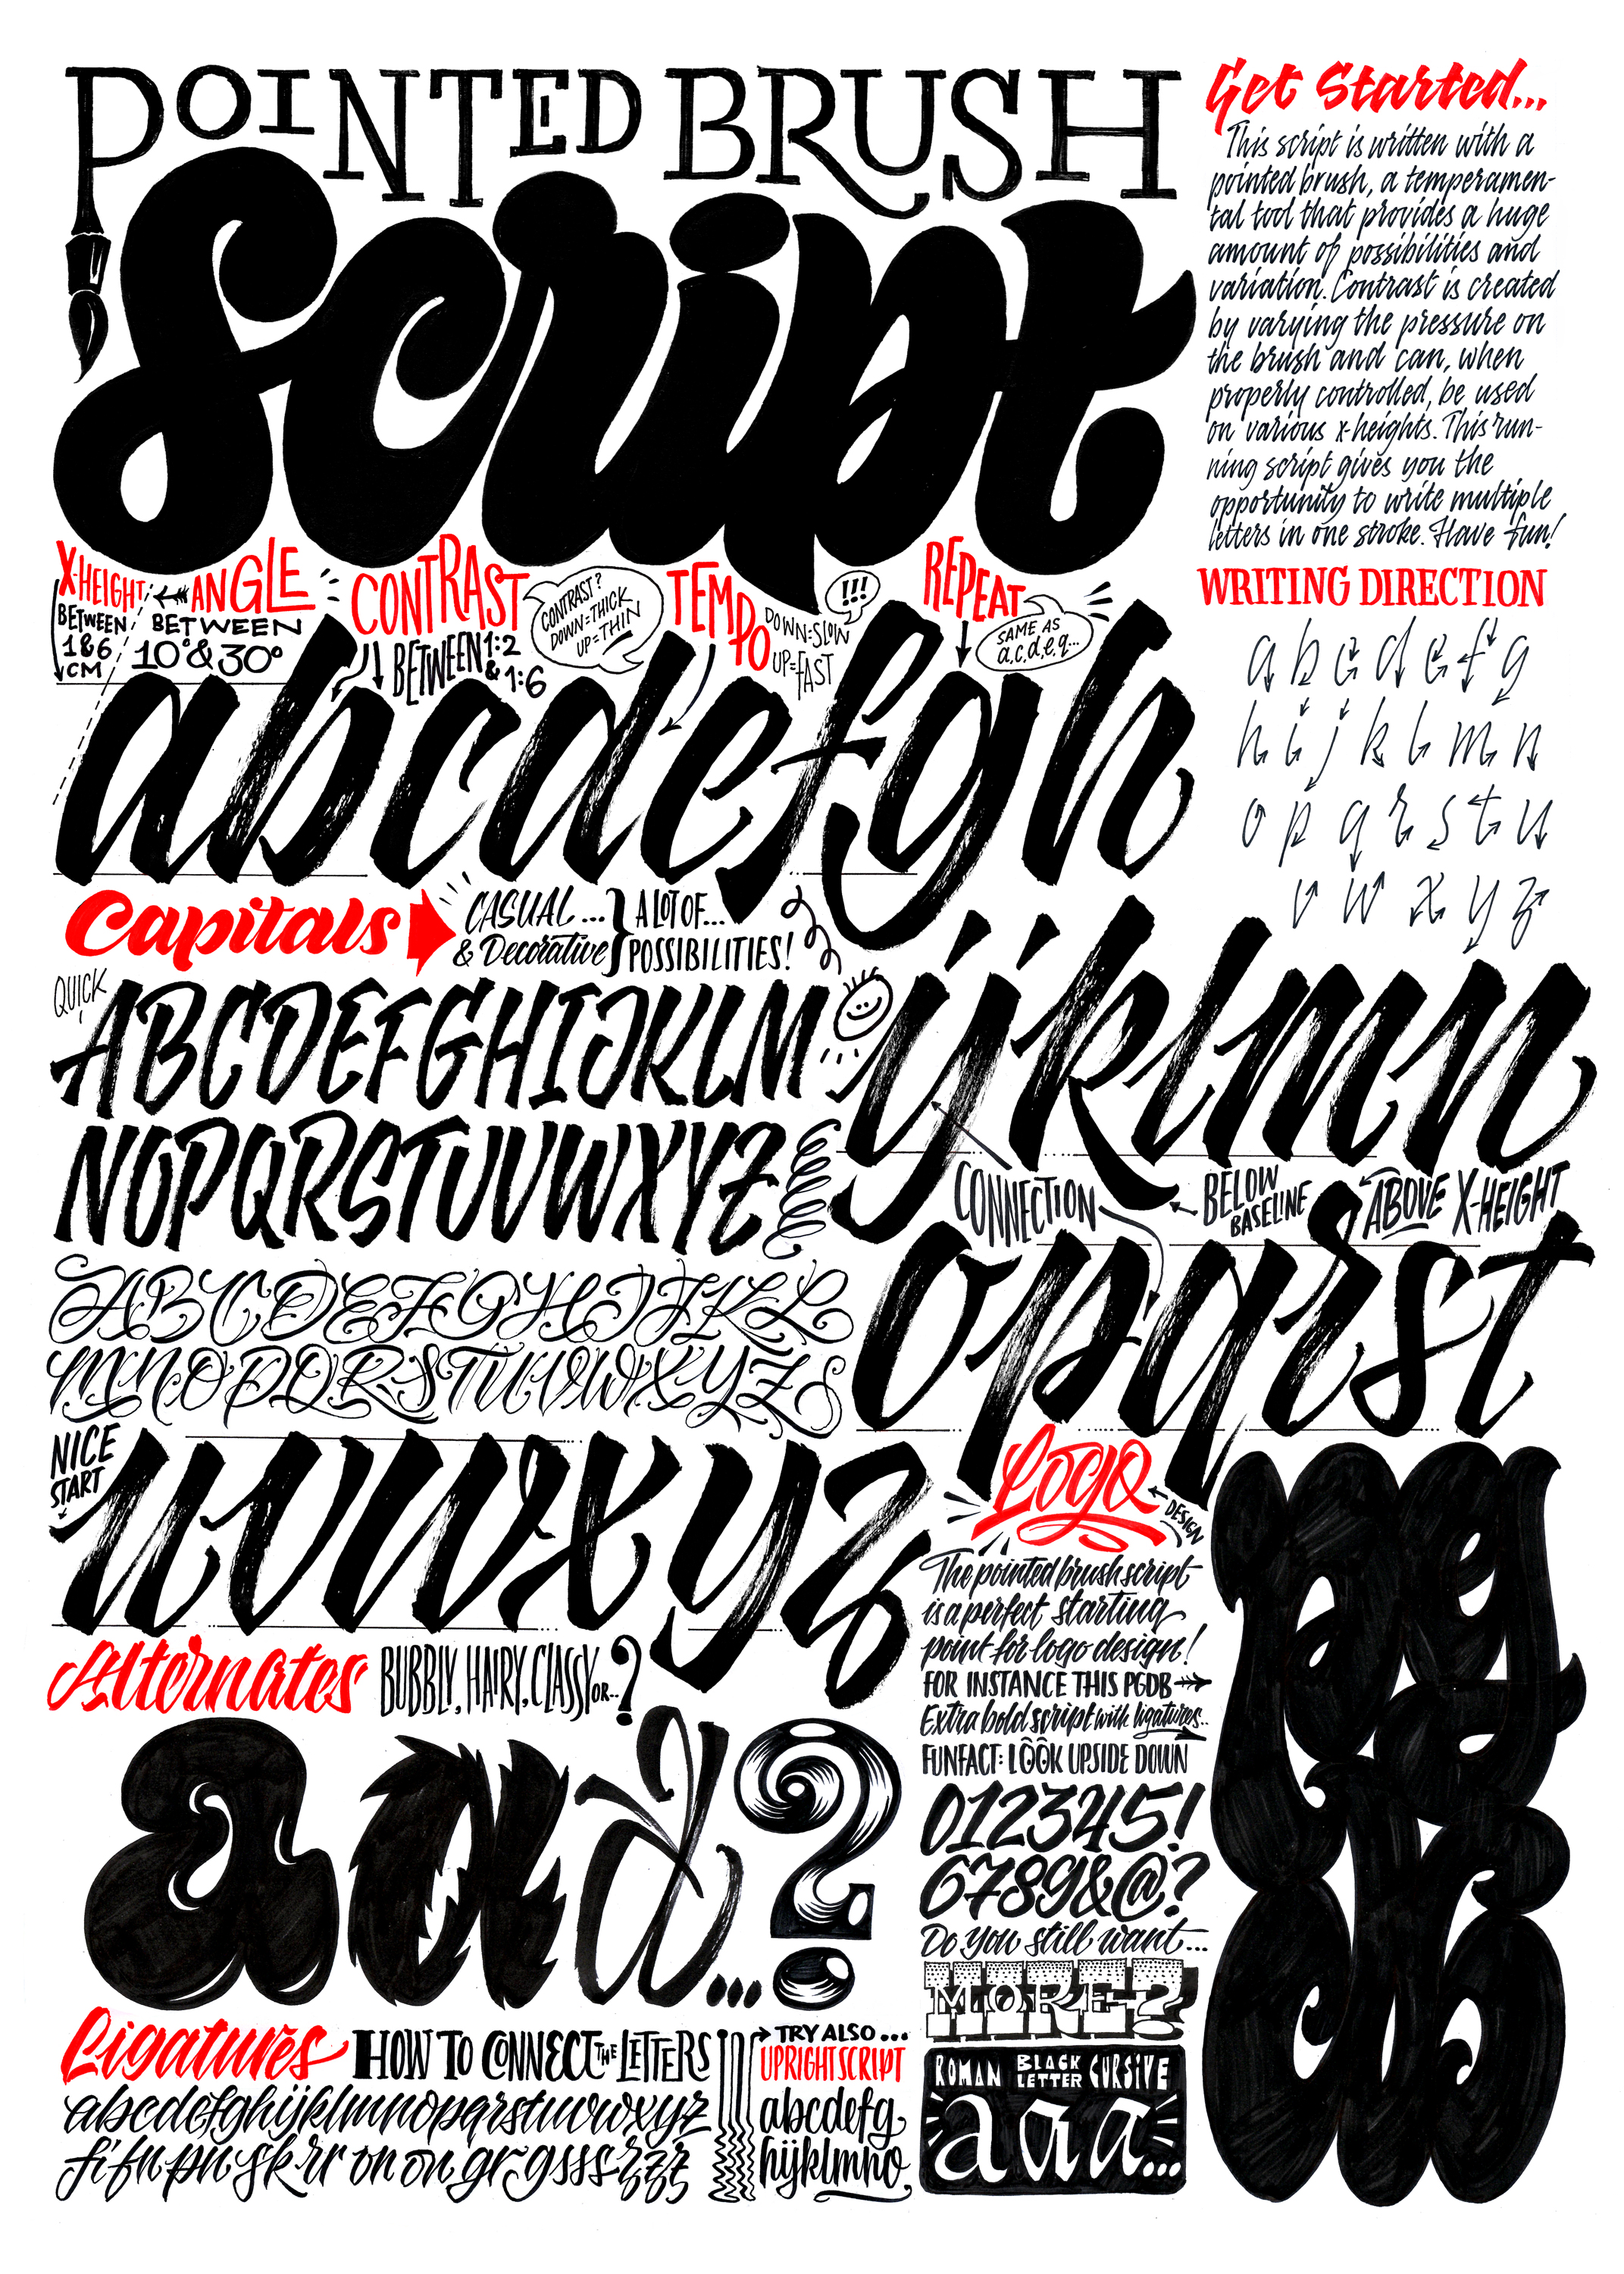 POINTED BRUSH
Script
Get Started...
This script is written with a
pointed brush, a temperamen-
tal tool that provides a huge
amount of possibilities and
variation. Contrast is created
by varying the pressure on
the brush and can, when
properly controlled, be used
on various x-heights. This run-
ning script gives you the
opportunity to write multiple
letters in one stroke. Have fun!
X-HEIGHT
BETWEEN
1&6
CM
ANGLE
BETWEEN
10°&30°
CONTRAST
BETWEEN 1:2
& 1:6
CONTRAST?
DOWN=THICK
UP=THIN
TEMPO
DOWN=SLOW
UP=FAST
!!!
REPEAT
SAME AS
a,c,d,e,q...
abcdefgh
WRITING DIRECTION
a b c d e f g
h i j k l m n
o p q r s t u
v w x y z
Capitals
CASUAL...
& Decorative
A LOT OF...
POSSIBILITIES!
QUICK
ABCDEFGHIJKLM
NOPQRSTUVWXYZ
ABCDEFGHIJKL
MNOPQRSTUVWXYZ
ijklmn
CONNECTION
BELOW
BASELINE
ABOVE X-HEIGHT
opqrst
NICE
START
uvwxyz
Logo
DESIGN
The pointed brush script
is a perfect starting
point for logo design!
FOR INSTANCE THIS PGDB
Extra bold script with ligatures..
FUNFACT: LOOK UPSIDE DOWN
pg
db
012345!
6789&@?
Do you still want...
MORE?
ROMAN BLACK LETTER CURSIVE
a a a...
Alternates
BUBBLY, HAIRY, CLASSY OR..?
a a a ...?
Ligatures
HOW TO CONNECT THE LETTERS
abcdefghijklmnopqrstuvwxyz
TRY ALSO...
UPRIGHT SCRIPT
abcdefg
hijklmno